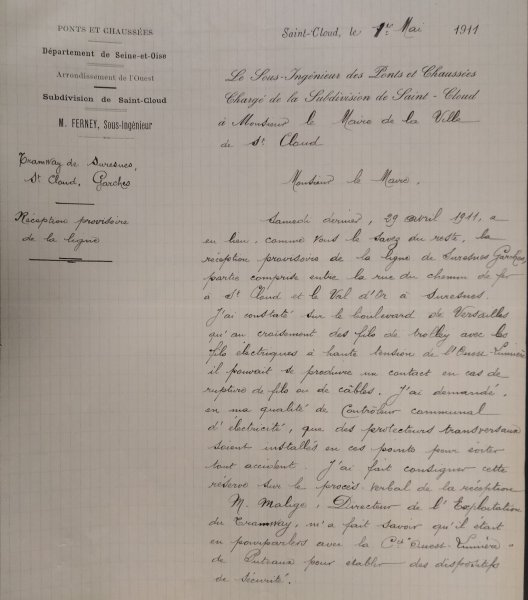 PONTS ET CHAUSSÉES
Département de Seine-et-Oise
Arrondissement de l'Ouest
Subdivision de Saint-Cloud
M. FERNEY, Sous-Ingénieur
Tramway de Suresnes,
St Cloud, Garches
Réception provisoire
de la ligne
Saint-Cloud, le 1er Mai 1911
Le Sous-Ingénieur des Ponts et Chaussées
Chargé de la Subdivision de Saint-Cloud
à Monsieur le Maire de la Ville
de St Cloud
Monsieur le Maire,
Samedi dernier, 29 avril 1911, a
eu lieu, comme vous le savez du reste, la
réception provisoire de la ligne de Suresnes Garches,
partie comprise entre la rue du chemin de fer
à St Cloud et le Val d'Or à Suresnes.
J'ai constaté sur le boulevard de Versailles
qu'au croisement des fils de trolley avec les
fils électriques à haute tension de l'Ouest-Lumière
il pouvait se produire un contact en cas de
rupture de fils ou de câbles. J'ai demandé,
en ma qualité de Contrôleur communal
d'électricité, que des protecteurs transversaux
soient installés en ces points pour éviter
tout accident. J'ai fait consigner cette
réserve sur le procès-verbal de la réception
M. Malige, Directeur de l'Exploitation
du Tramway, m'a fait savoir qu'il était
en pourparlers avec la Cie Ouest-Lumière
de Puteaux pour établir des dispositifs
de sécurité.